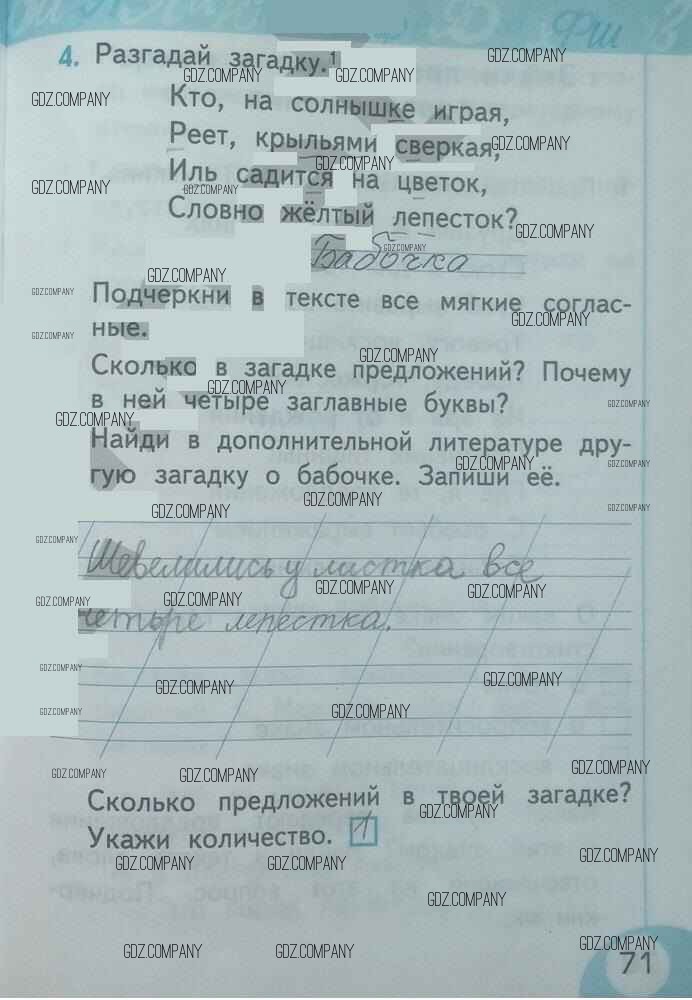 4. Разгадай загадку.¹
Кто, на солнышке играя,
Реет, крыльями сверкая,
Иль садится на цветок,
Словно жёлтый лепесток?
Бабочка
Подчеркни в тексте все мягкие соглас-
ные.
Сколько в загадке предложений? Почему
в ней четыре заглавные буквы?
Найди в дополнительной литературе дру-
гую загадку о бабочке. Запиши её.
Шевелились у листка все
четыре лепестка.
Сколько предложений в твоей загадке?
Укажи количество. 1
71
GDZ.COMPANY